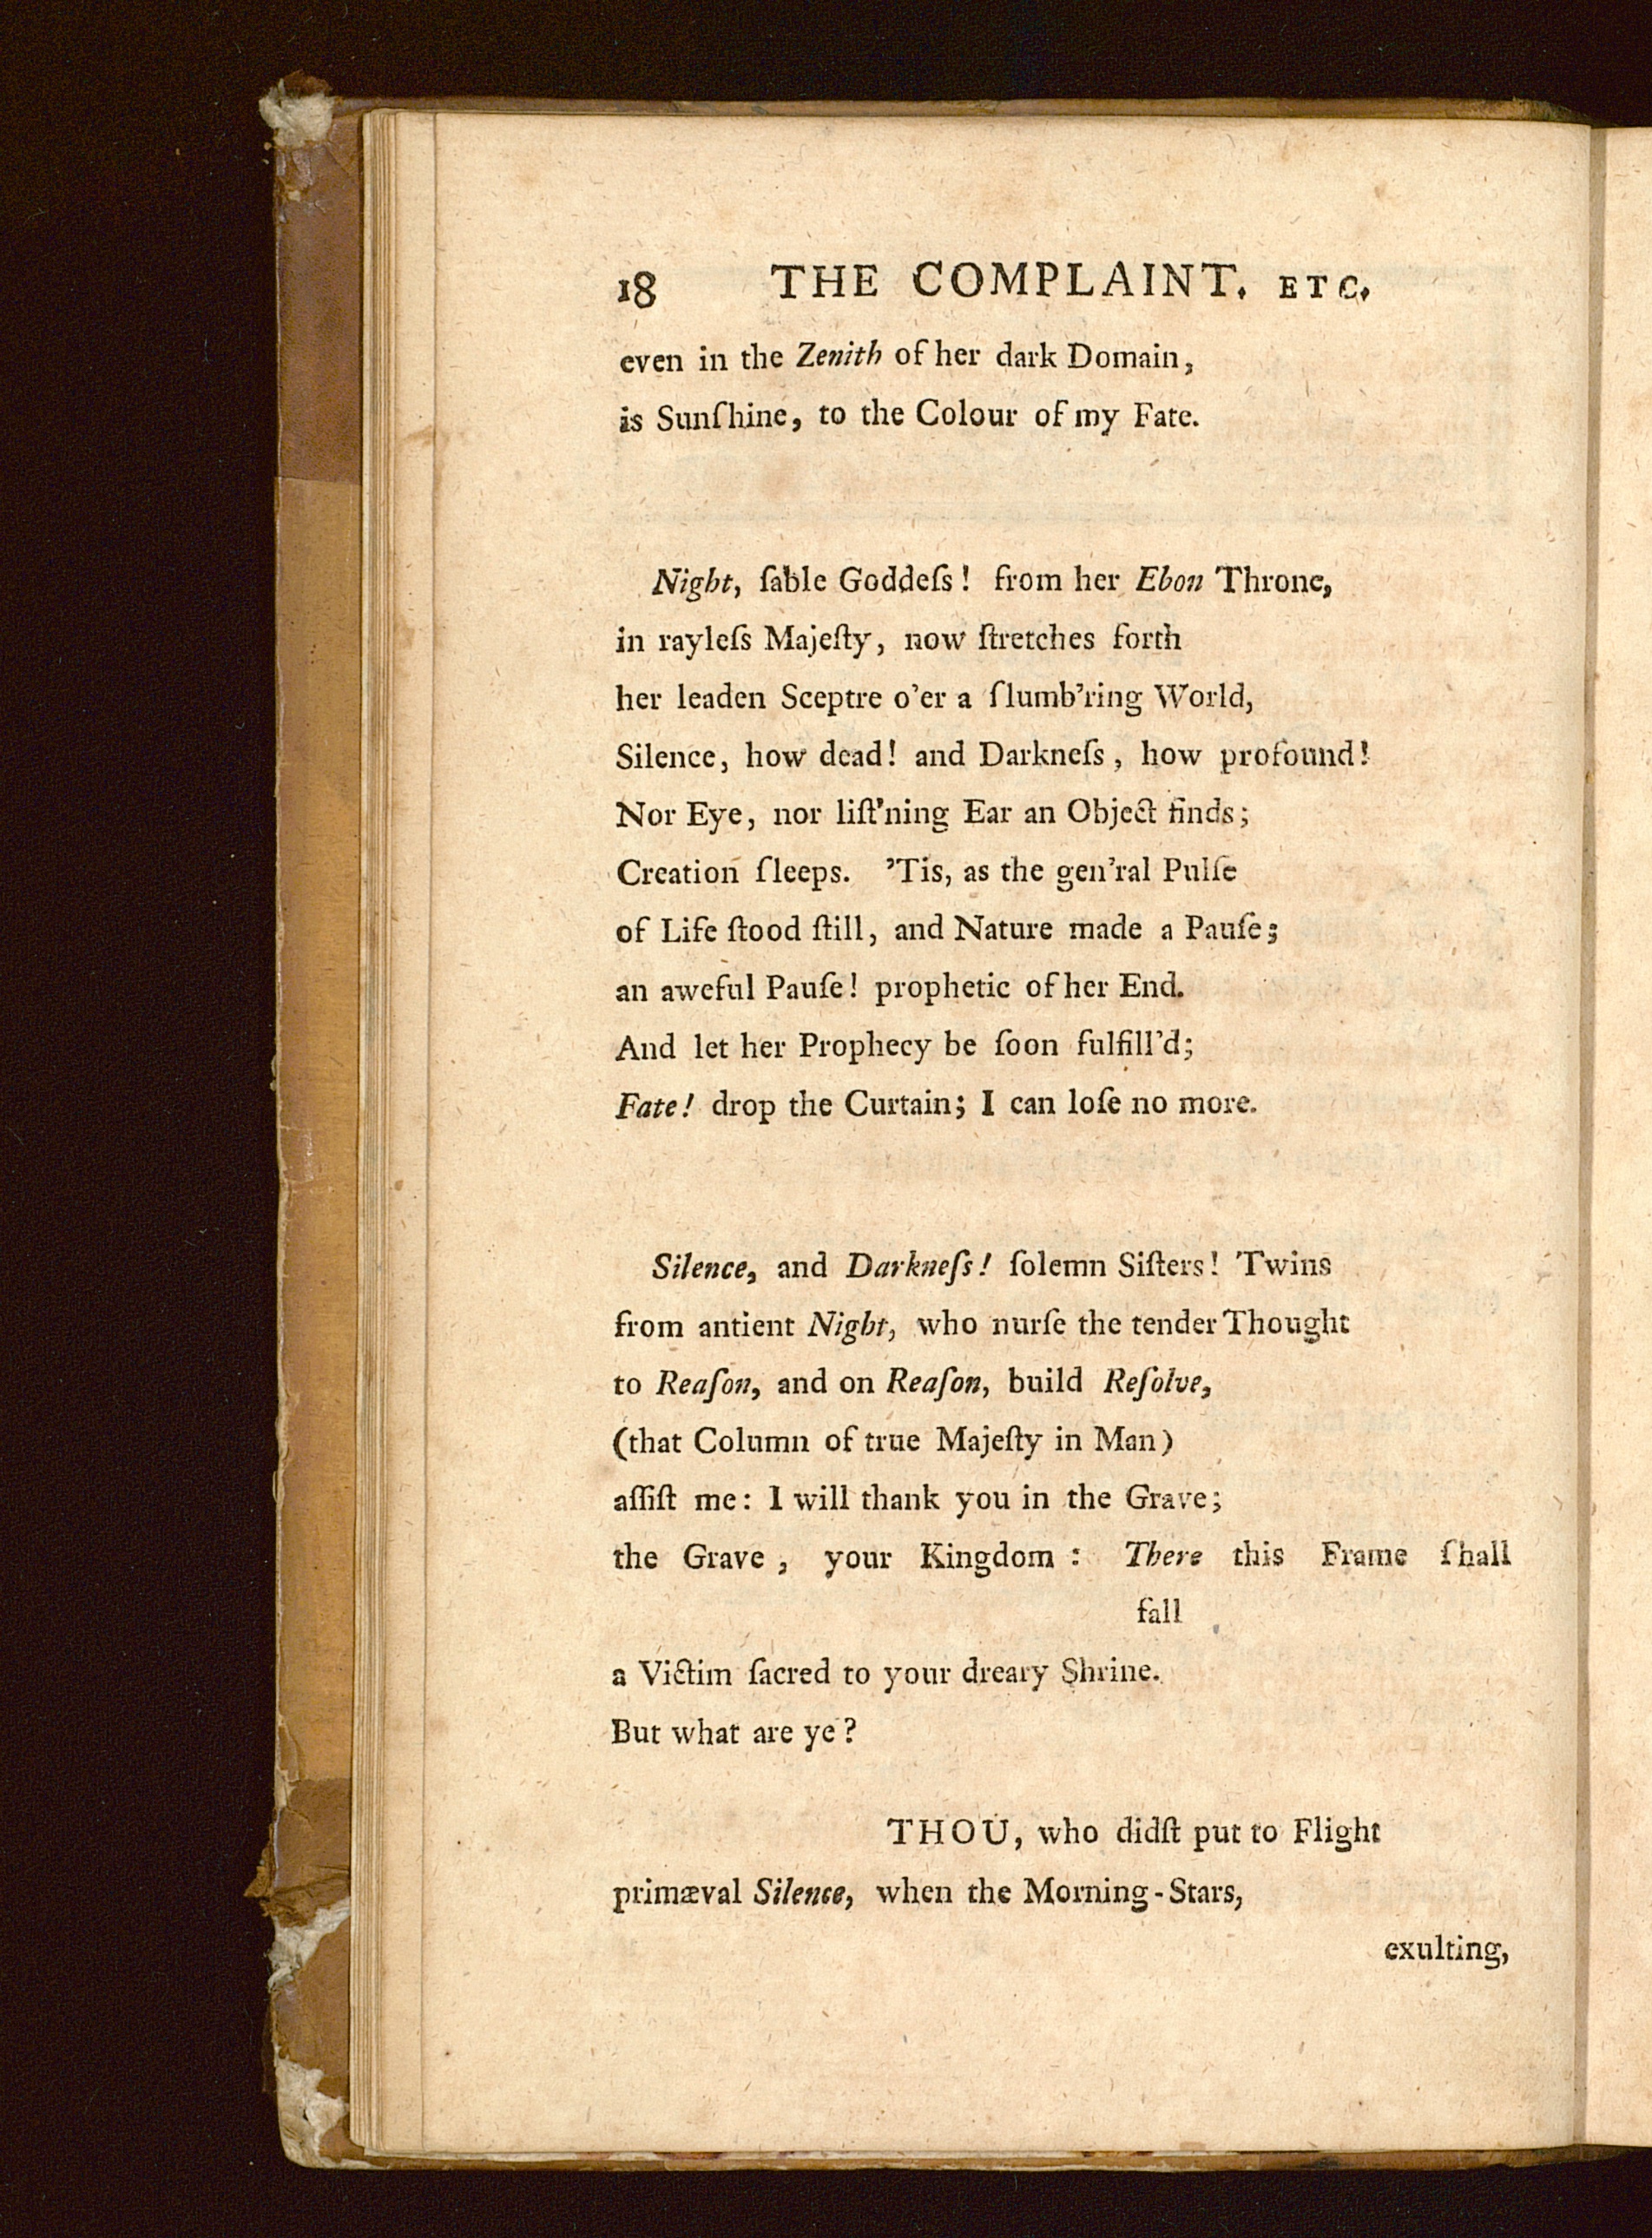 18 THE COMPLAINT. ETC.
even in the Zenith of her dark Domain,
is Sunſhine, to the Colour of my Fate.
Night, ſable Goddeſs! from her Ebon Throne,
in rayleſs Majeſty, now ſtretches forth
her leaden Sceptre o'er a ſlumb'ring World,
Silence, how dead! and Darkneſs, how profound!
Nor Eye, nor liſt'ning Ear an Object finds;
Creation ſleeps. 'Tis, as the gen'ral Pulſe
of Life ſtood ſtill, and Nature made a Pauſe;
an aweful Pauſe! prophetic of her End.
And let her Prophecy be ſoon fulfill'd;
Fate! drop the Curtain; I can loſe no more.
Silence, and Darkneſs! ſolemn Siſters! Twins
from antient Night, who nurſe the tender Thought
to Reaſon, and on Reaſon, build Reſolve,
(that Column of true Majeſty in Man)
aſſiſt me: I will thank you in the Grave;
the Grave, your Kingdom: There this Frame ſhall
fall
a Victim ſacred to your dreary Shrine.
But what are ye?
THOU, who didſt put to Flight
primæval Silence, when the Morning-Stars,
exulting,